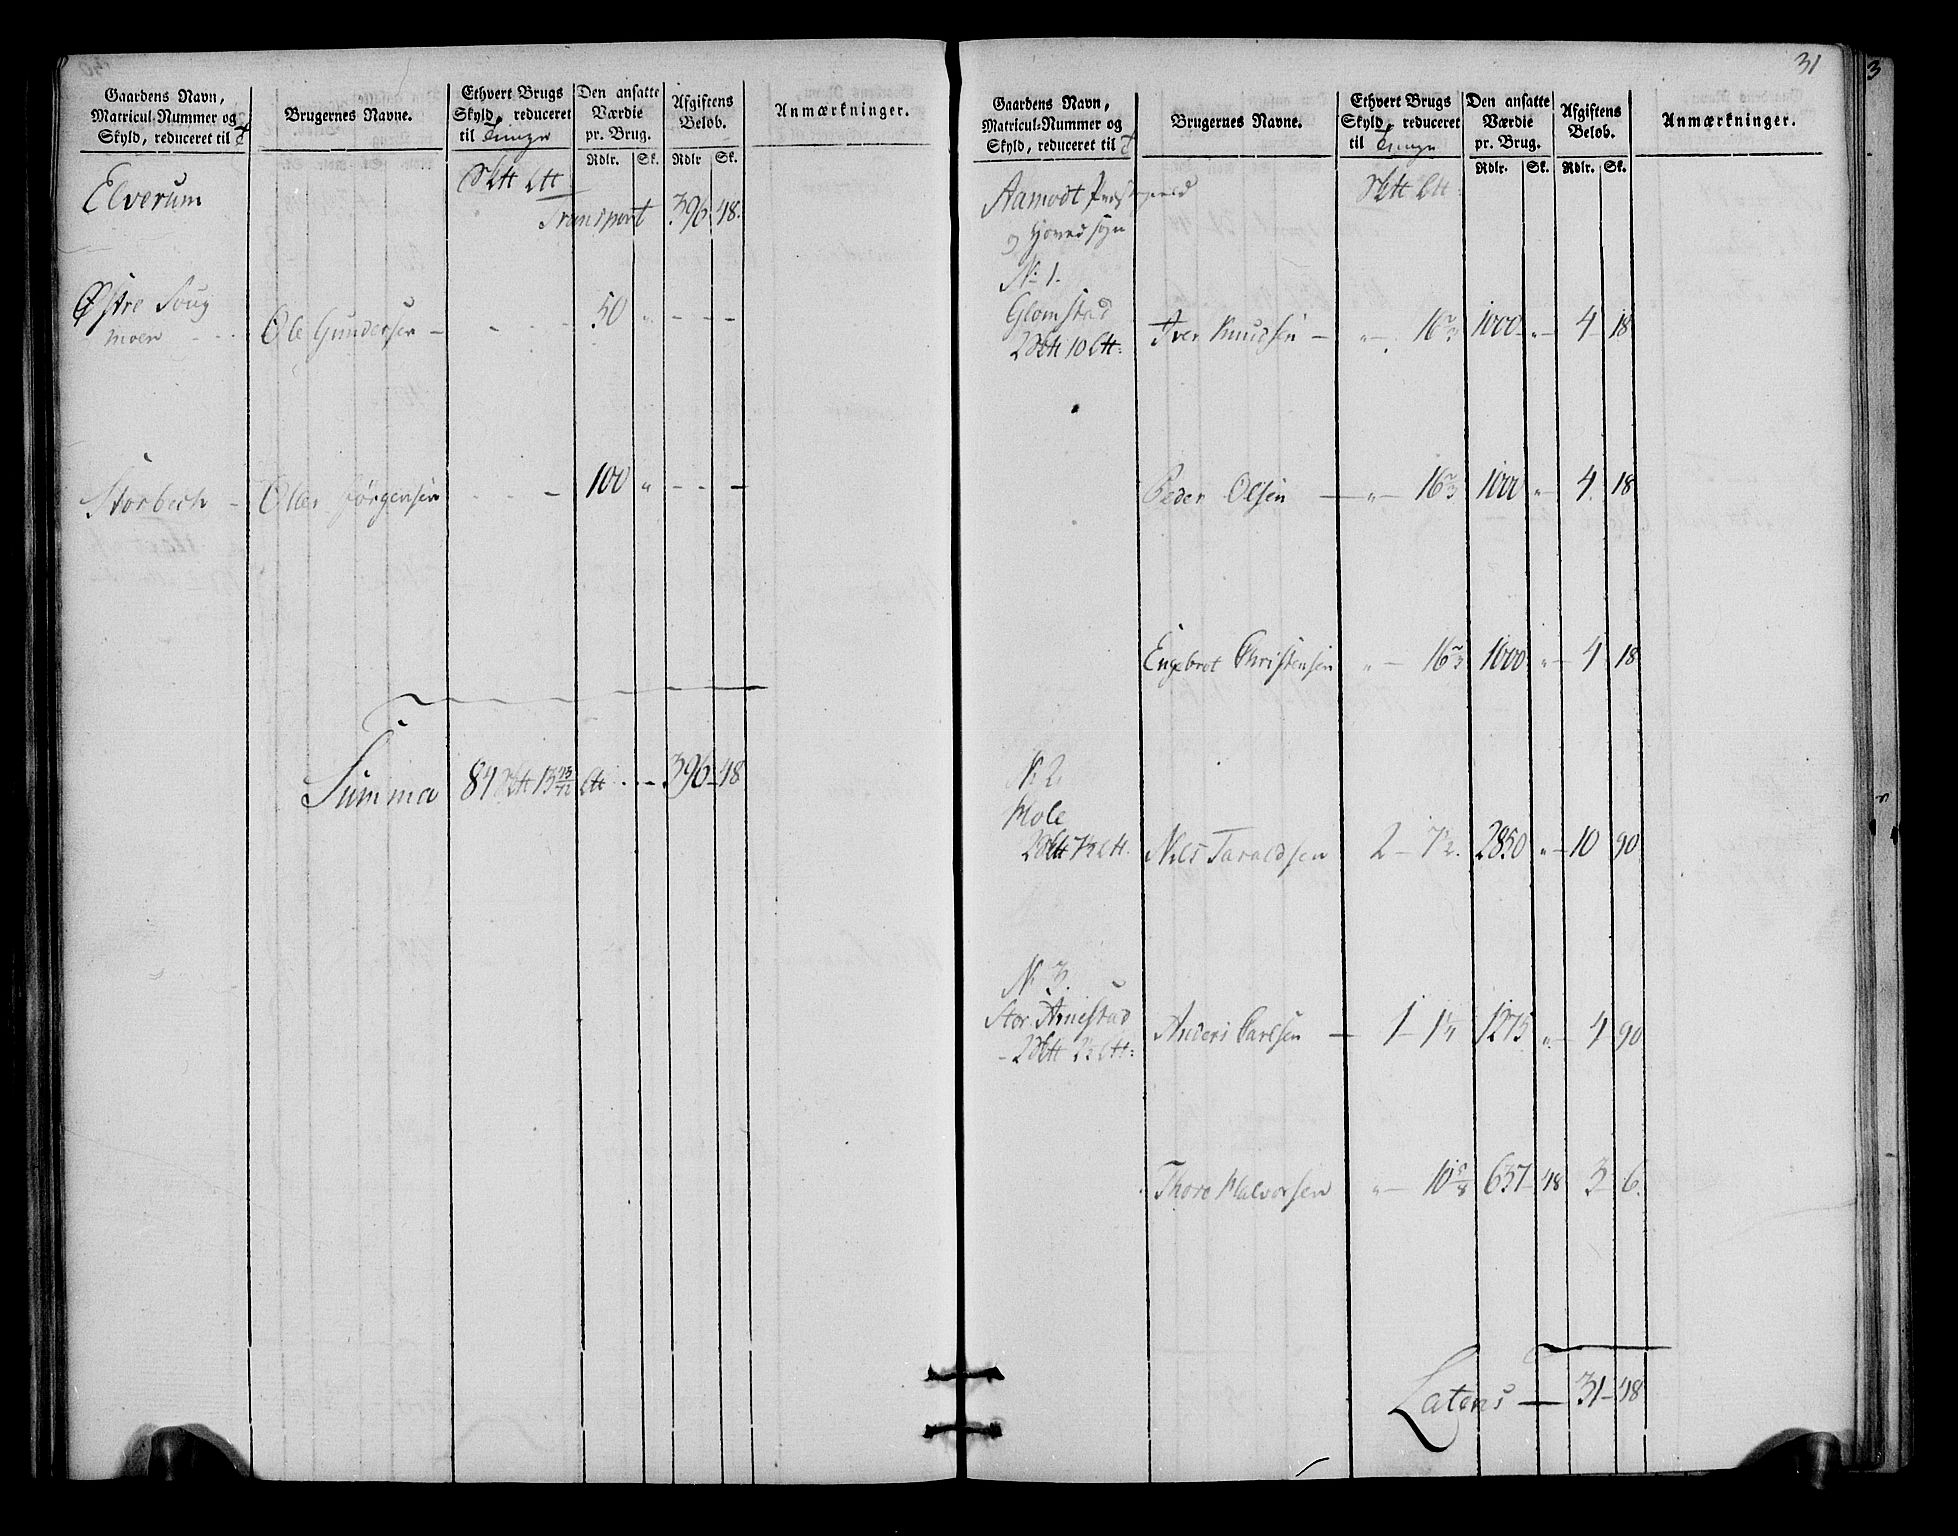 Gaardens Navn,
Matricul-Nummer og
Skyld, reduceret til
Brugernes Navne.
Ethvert Brugs
Skyld reduceret
til Tunge
Den ansatte
Værdie
pr. Brug.
Rdlr. Sk.
Afgiftens
Beløb.
Rdlr Sk.
Anmærkninger.
Elverum
Transport 396 48.
Østre Soug
moen Ole Gundersen 50 " - - -
Storbech - Oller Jørgensen - - - 100 " - - -
Summa 84 13 396 - 48
31
Gaardens Navn,
Matricul-Nummer og
Skyld, reduceret til
Brugernes Navne.
Ethvert Brugs
Skyld reduceret
til Tunge
Den ansatte
Værdie
pr. Brug.
Rdlr. Sk.
Afgiftens
Beløb.
Rdlr. Sk.
Anmærkninger.
Aamodt Præstegield
Hovedsogn
No 1.
Glomstad
Iver Knudsen - " - 16 2/3 1000 - " - 4 - 18
Peder Olsen - " - 16 2/3 1000 - " - 4. 18
Engebret Christensen " - 16 2/3 1000 " - 4 18
N 2
Hole
Nils Taraldsen 2 - 7 1/2. 2850 " - 10 90
N 3.
Stor Arnestad
Anders Carlsen - 1 - 1 1/4 1275 " - 4 90
Thore Halvorsen " - 10 5/8 637 - 48 3 - 6.
Lateris - 31 - 48